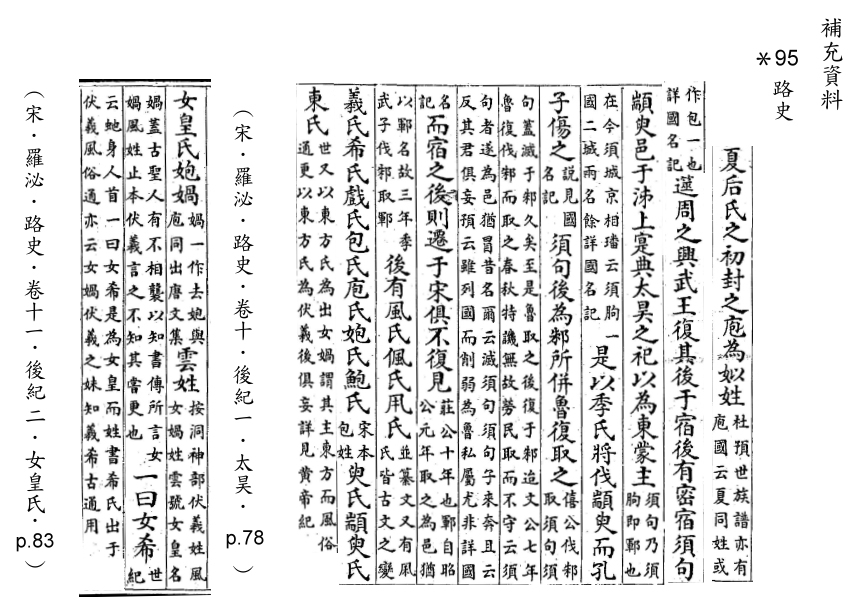 補充資料
＊95 路史
夏后氏之初封之庖為姒姓
杜預世族譜亦有
庖國云夏同姓或
作包一也
詳國名記
逮周之興武王復其後于宿後有密宿須句
顓臾邑于沛上寔典太昊之祀以為東蒙主
須句乃須
朐即鄆也
在今須城京相璠云須朐一
國二城兩名餘詳國名記
是以季氏將伐顓臾而孔
子傷之
說見國
名記
須句後為邾所併魯復取之
僖公伐邾
取須句須
句蓋滅于邾久矣至是魯取之後復于邾迨文公七年
魯復伐邾而取之春秋特譏無故勞民取而不守云須
句者遂為邑猶冒昔名爾云滅須句須句子來奔且云
反其君俱妄預云雖列國而削弱為魯私屬尤非詳國
名
記
而宿之後則遷于宋俱不復見
莊公十年也鄆自昭
公元年取之為邑猶
以鄆名故三年季
武子伐邾取鄆
後有風氏佩氏凧氏
並纂文又有凧
氏皆古文之變
羲氏希氏戲氏包氏庖氏炮氏鮑氏
宋本
包姓
臾氏顓臾氏
東氏
世又以東方氏為出女媧謂其主東方而風俗
通更以東方氏為伏羲後俱妄詳見黃帝紀
（宋．羅泌．路史．卷十．後紀一．太昊．p.78）
女皇氏炮媧
媧一作去炮與
庖同出唐文集
雲姓
按洞神部伏羲姓風
女媧姓雲號女皇名
媧蓋古聖人有不相襲以知書傳所言女
媧風姓止本伏羲言之不知其嘗更也
一曰女希
世
紀
云虵身人首一曰女希是為女皇而姓書希氏出于
伏羲風俗通亦云女媧伏羲之妹知羲希古通用
（宋．羅泌．路史．卷十一．後紀二．女皇氏．p.83）